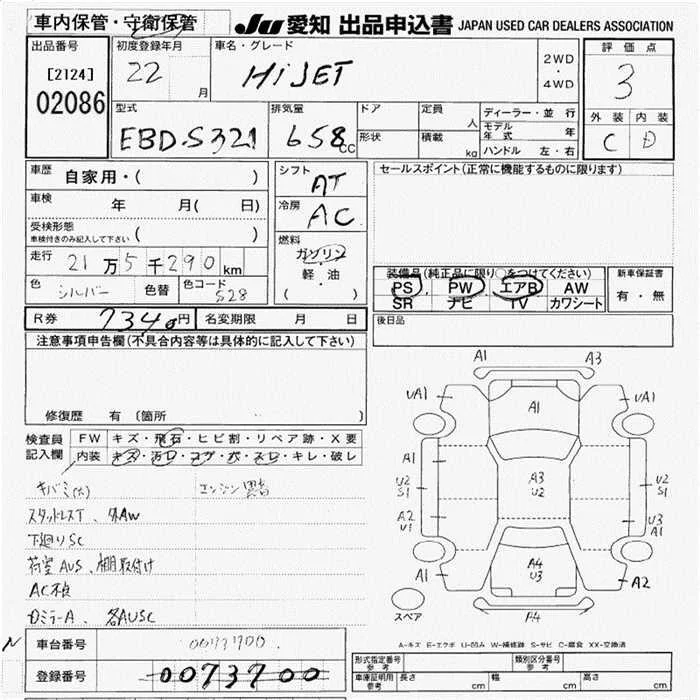 車内保管・守衛保管
JU 愛知 出品申込書 JAPAN USED CAR DEALERS ASSOCIATION
出品番号
[2124]
02086
初度登録年月
22 月
車名・グレード
HiJET
2WD
・
4WD
評価点
3
外装 内装
C D
型式
EBD-S321
排気量
658 cc
ドア
形状
定員 人
積載 kg
ディーラー・並行
モデル年式 年
ハンドル 左・右
車歴 自家用・( )
車検 年 月( 日)
受検形態
車検付きのみ記入して下さい ( )
走行 21万5千290km
色 シルバー 色替 色コード S28
シフト
AT
冷房
AC
燃料
ガソリン
・
軽・油
( )
セールスポイント(正常に機能するものに限ります)
装備品(純正品に限り○をつけてください)
PS PW エアB AW
SR ナビ TV カワシート
新車保証書
有・無
R券 7340円 名変期限 月 日
後日品
注意事項申告欄(不具合内容等は具体的に記入して下さい)
修復歴 有 (箇所 )
検査員
記入欄
FW キズ・飛石・ヒビ割・リペア跡・X要
内装 キズ・汚れ・コゲ・穴・スレ・キレ・破レ
キバミ(大)
エンジン異音
スタッドレスT、外AW
下廻りSC
荷室AUS、棚取付け
AC不良
DミラーA、各AUSC
車台番号
登録番号 0073700
A1 A3
UA1 A1 UA1
A1
U2
S1
A3
U2
U2
S1
A2
U1
U3
A1
A1
A4
U3
A2
P4
スペア
A-キズ E-エクボ U-凹み W-補修跡 S-サビ C-腐食 XX-交換済
形式指定番号
参考
類別区分番号
参考
車庫証明用
参考
長さ cm 幅 cm 高さ cm